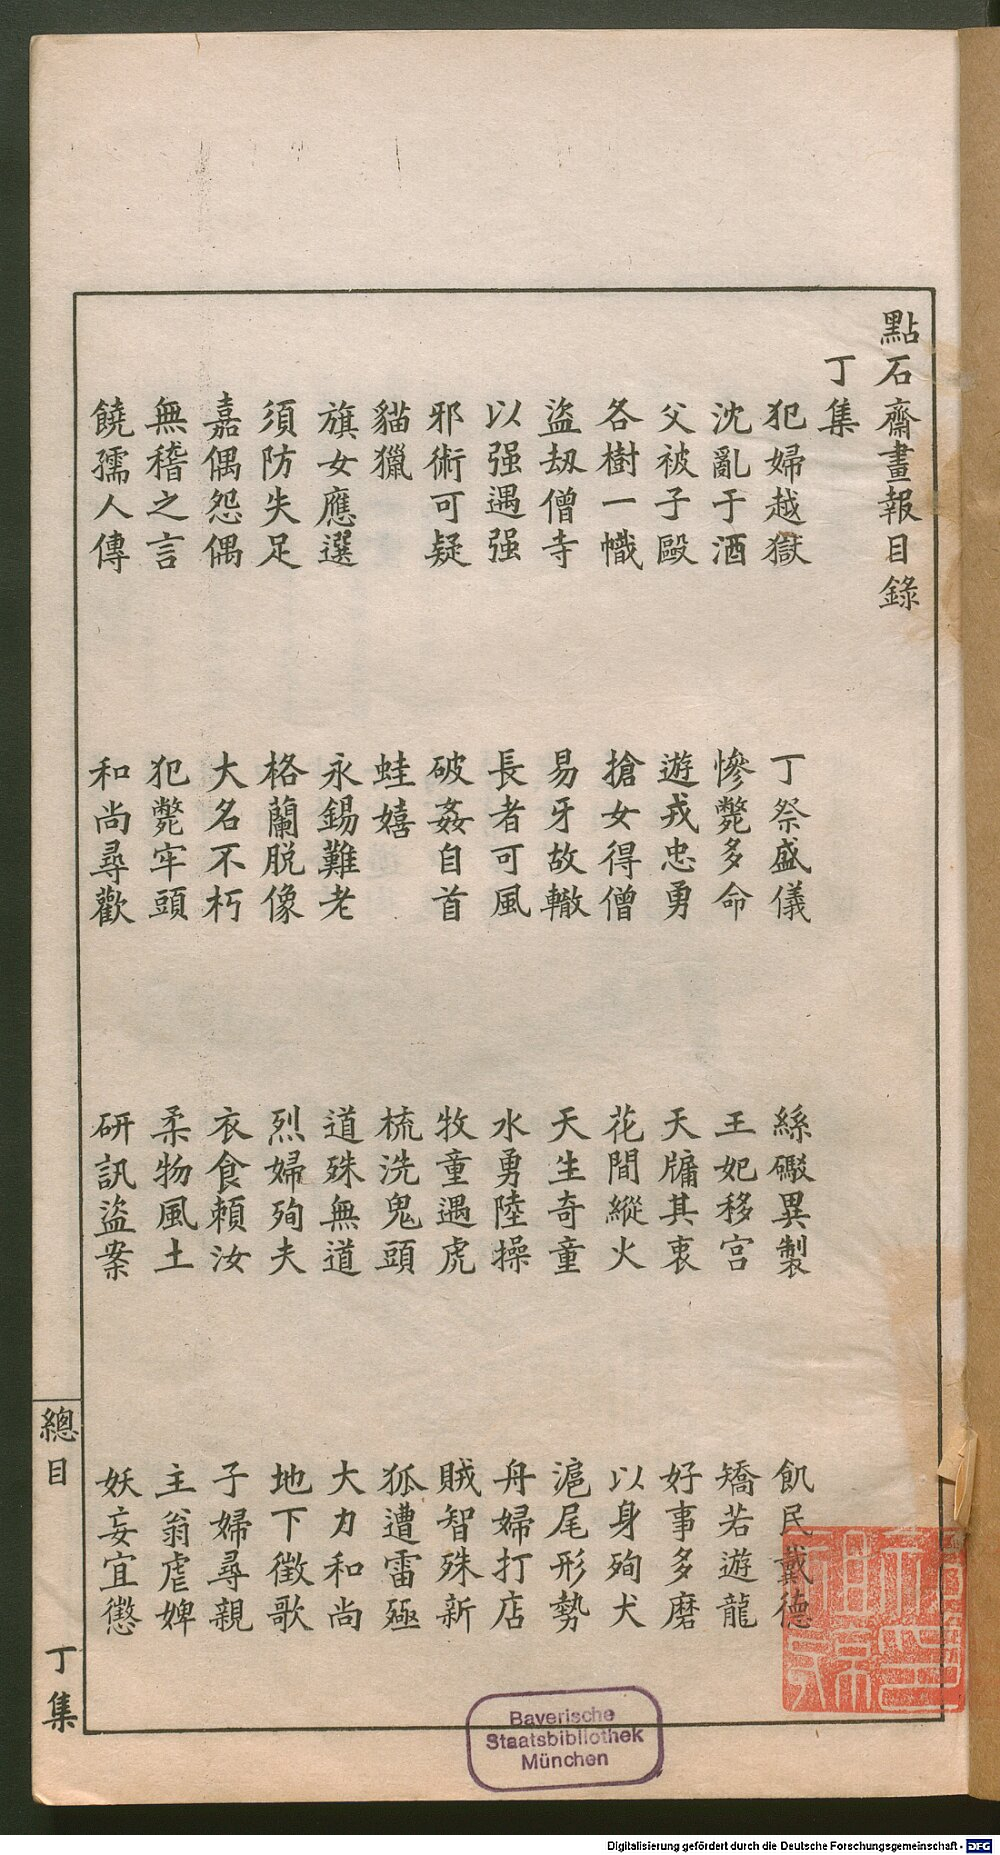 點石齋畫報目錄
丁集
犯婦越獄 丁祭盛儀 絲礮異製 飢民戴德
沈亂于酒 慘斃多命 王妃移宮 矯若遊龍
父被子毆 遊戎忠勇 天牗其衷 好事多磨
各樹一幟 搶女得僧 花間縱火 以身殉犬
盜刼僧寺 易牙故轍 天生奇童 滬尾形勢
以强遇强 長者可風 水勇陸操 舟婦打店
邪術可疑 破姦自首 牧童遇虎 賊智殊新
貓獵 蛙嬉 梳洗鬼頭 狐遭雷殛
旗女應選 永錫難老 道殊無道 大力和尚
須防失足 格蘭脱像 烈婦殉夫 地下徵歌
嘉偶怨偶 大名不朽 衣食賴汝 子婦尋親
無稽之言 犯斃牢頭 柔物風土 主翁虐婢
饒孺人傳 和尚尋歡 研訊盜案 妖妄宜懲
總目 丁集
Bayerische
Staatsbibliothek
München
Digitalisierung gefördert durch die Deutsche Forschungsgemeinschaft - DFG